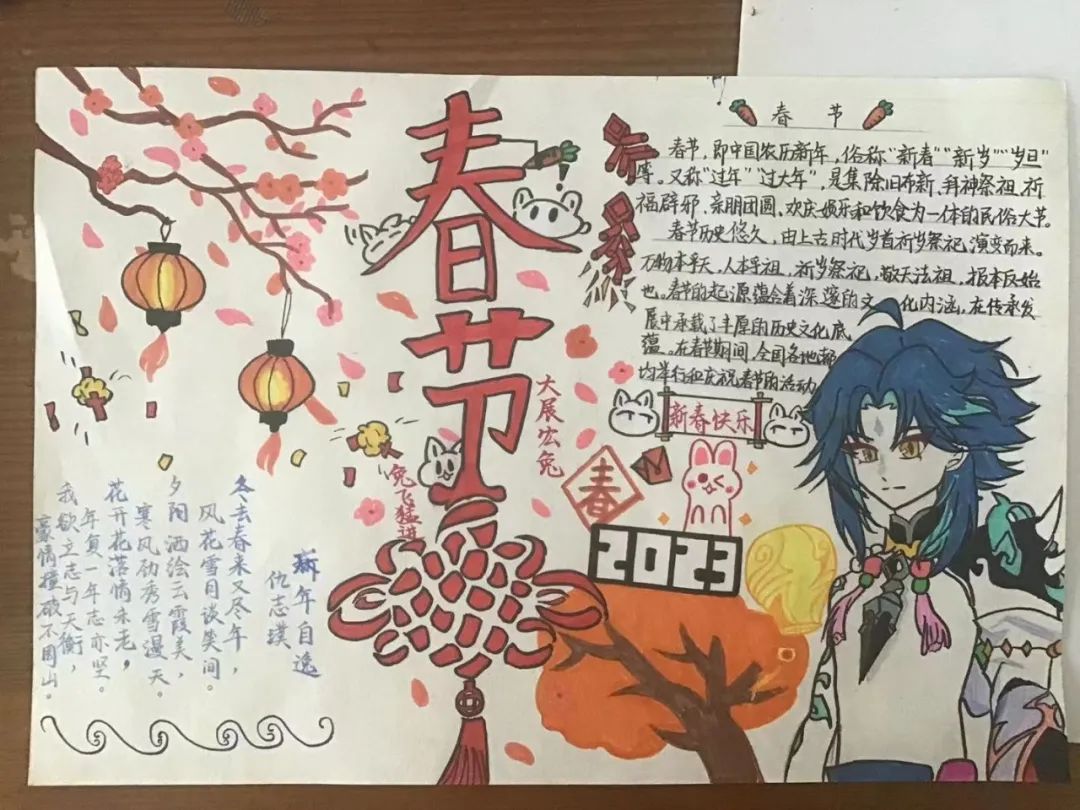 春节
春节
春节，即中国农历新年，俗称“新春”“新岁”“岁旦”
等。又称“过年”“过大年”，是集除旧布新、拜神祭祖、祈
福辟邪、亲朋团圆、欢庆娱乐和饮食为一体的民俗大节。
春节历史悠久，由上古时代岁首祈岁祭祀演变而来。
万物本乎天，人本乎祖，祈岁祭祀、敬天法祖，报本反始
也。春节的起源蕴含着深邃的文化内涵，在传承发
展中承载了丰厚的历史文化底
蕴。在春节期间，全国各地都
均举行和庆祝春节的活动
新春快乐
大展宏兔
兔飞猛进
春
2023
新年自逸
仇志璞
冬去春来又尽年，
风花雪月谈笑间。
夕阳洒绘云霞美，
寒风劲秀雪漫天。
花开花落情未老，
年复一年志亦坚。
我欲立志与天衡，
豪情撞破不周山。